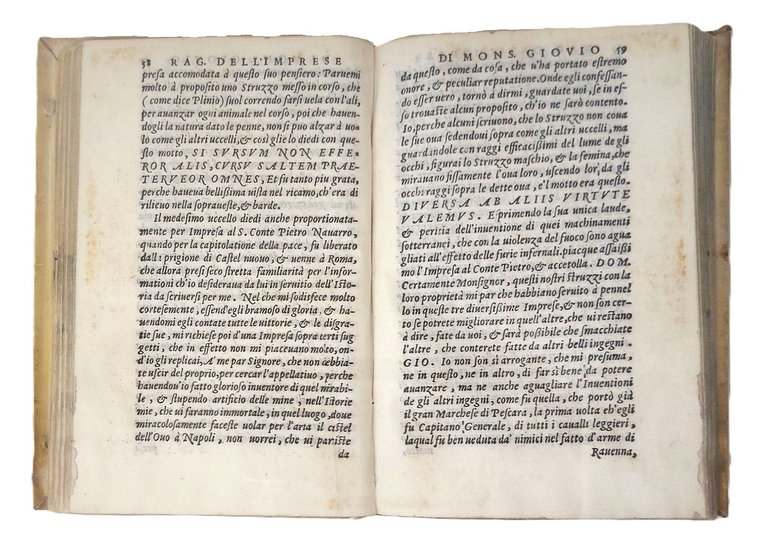 58 RAG. DELL'IMPRESE
presa accomodata à questo suo pensiero: Paruemi
molto à proposito uno Struzzo messo in corso, che
(come dice Plinio) suol correndo farsi uela con l'ali,
per auanzar ogni animale nel corso, poi che hauen-
dogli la natura dato le penne, non si puo alzar à uo-
lo come gli altri uccelli, & così glie lo diedi con que-
sto motto, SI SVRSVM NON EFFE-
ROR ALIS, CVRSV SALTEM PRAE-
TERVEOR OMNES, Et fu tanto piu grata,
perche haueua bellißima uista nel ricamo, ch'era di
rilieuo nella soprauueste, & barde.
Il medesimo uccello diedi anche proportionata-
mente per Impresa al S. Conte Pietro Nauarro,
quando per la capitolatione della pace, fu liberato
dalla prigione di Castel nuouo, & uenne à Roma,
che allora presi seco stretta familiarità per l'infor-
mationi ch'io desideraua da lui in seruitio dell'Isto-
ria da scriuersi per me. Nel che mi sodisfece molto
cortesemente, essend'egli bramoso di gloria, & ha-
uendomi egli contate tutte le uittorie, & le disgra-
tie sue, mi richiese poi d'una Impresa sopra certi sug
getti, che in effetto non mi piaceuano molto, on-
d'io gli replicai, A me par Signore, che non debbia-
te uscir del proprio, per cercar l'appellatiuo, perche
hauendou'io fatto glorioso inuentore di quel mirabi-
le, & stupendo artificio delle mine, nell'Istorie
mie, che ui faranno immortale, in quel luogo, doue
miracolosamente faceste uolar per l'aria il castel
dell'Ouo à Napoli, non uorrei, che ui pariste
da
DI MONS. GIOVIO 59
da questo, come da cosa, che u'ha portato estremo
onore, & peculiar reputatione. Onde egli confessan-
do esser uero, tornò à dirmi, guardate uoi, se in es-
so trouaste alcun proposito, ch'io ne sarò contento.
Io, perche alcuni scriuono, che lo Struzzo non coua
le sue oua sedendoui sopra come gli altri uccelli, ma
guardandole con raggi efficacißimi del lume de gli
occhi, figurai lo Struzzo maschio, & la femina, che
mirauano fissamente l'oua loro, uscendo lor, da gli
occhi raggi sopra le dette oua, e'l motto era questo.
DIVERSA AB ALIIS VIRTVTE
VALEMVS. Esprimendo la sua unica laude,
& peritia dell'inuentione di quei machinamenti
sotterranei, che con la uiolenza del fuoco sono agua
gliati all'effetto delle furie infernali. piacque assaißi
mo l'Impresa al Conte Pietro, & accetolla. DOM.
Certamente Monsignor, questi nostri struzzi con la
loro proprietà mi par che habbiano seruito à pennel
lo in queste tre diuersißime Imprese, & non son cer-
to se potrete migliorare in quell'altre, che ui restano
à dire, fate da uoi, & sarà poßibile che smacchiate
l'altre, che conterete fatte da altri belli ingegni.
GIO. Io non son sì arrogante, che mi presuma,
ne in questo, ne in altro, di far sì bene da potere
auanzare, ma ne anche aguagliare l'Inuentioni
de gli altri ingegni, come fu quella, che portò già
il gran Marchese di Pescara, la prima uolta ch'egli
fu Capitano Generale, di tutti i caualli leggieri,
laqual fu ben ueduta da' nimici nel fatto d'arme di
Rauenna,